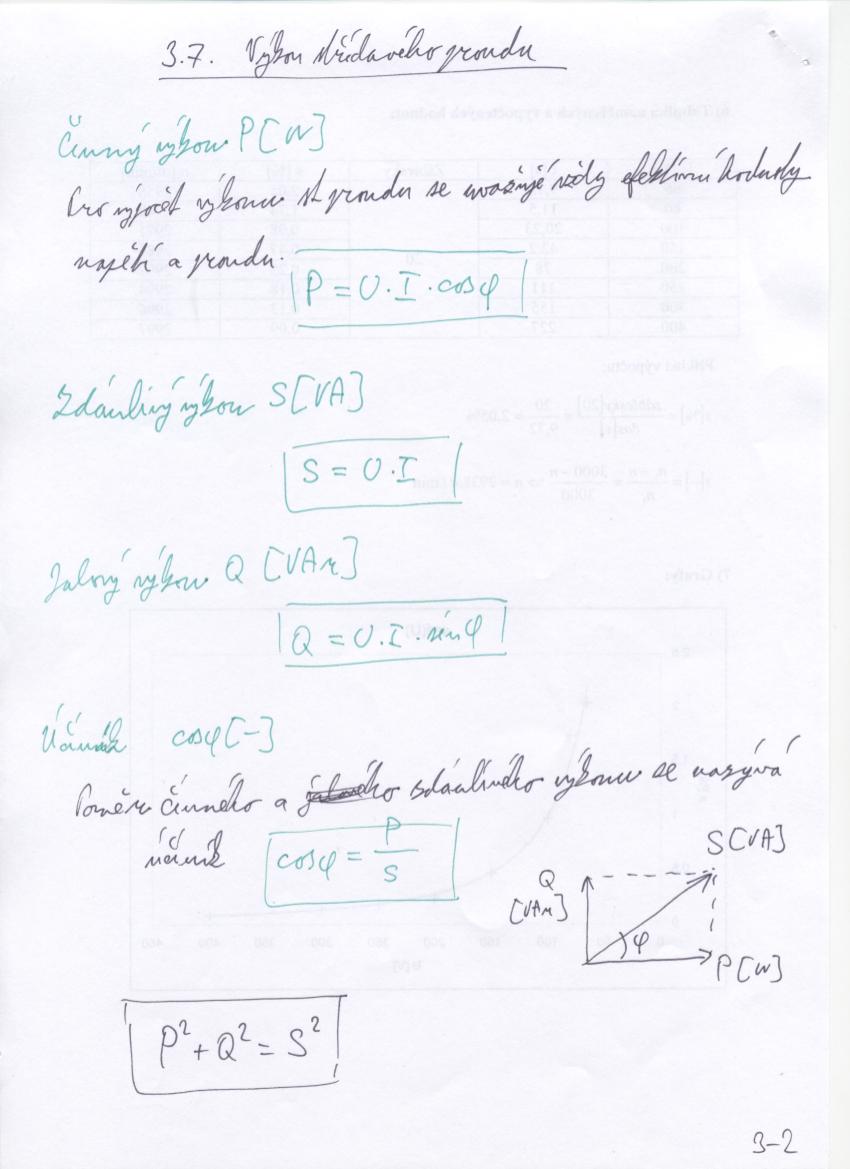 3.7. Výkon střídavého proudu
Činný výkon P[W]
Pro výpočet výkonu st proudu se uvažuje vždy efektivní hodnoty
napětí a proudu.
P = U.I.cosφ
Zdánlivý výkon S[VA]
S = U.I
Jalový výkon Q [VAr]
Q = U.I.sinφ
Účiník cosφ[-]
Poměr činného a zdánlivého výkonu se nazývá
účiník
cosφ = P/S
S[VA]
Q
[VAr]
φ
P[W]
P²+Q² = S²
3-2